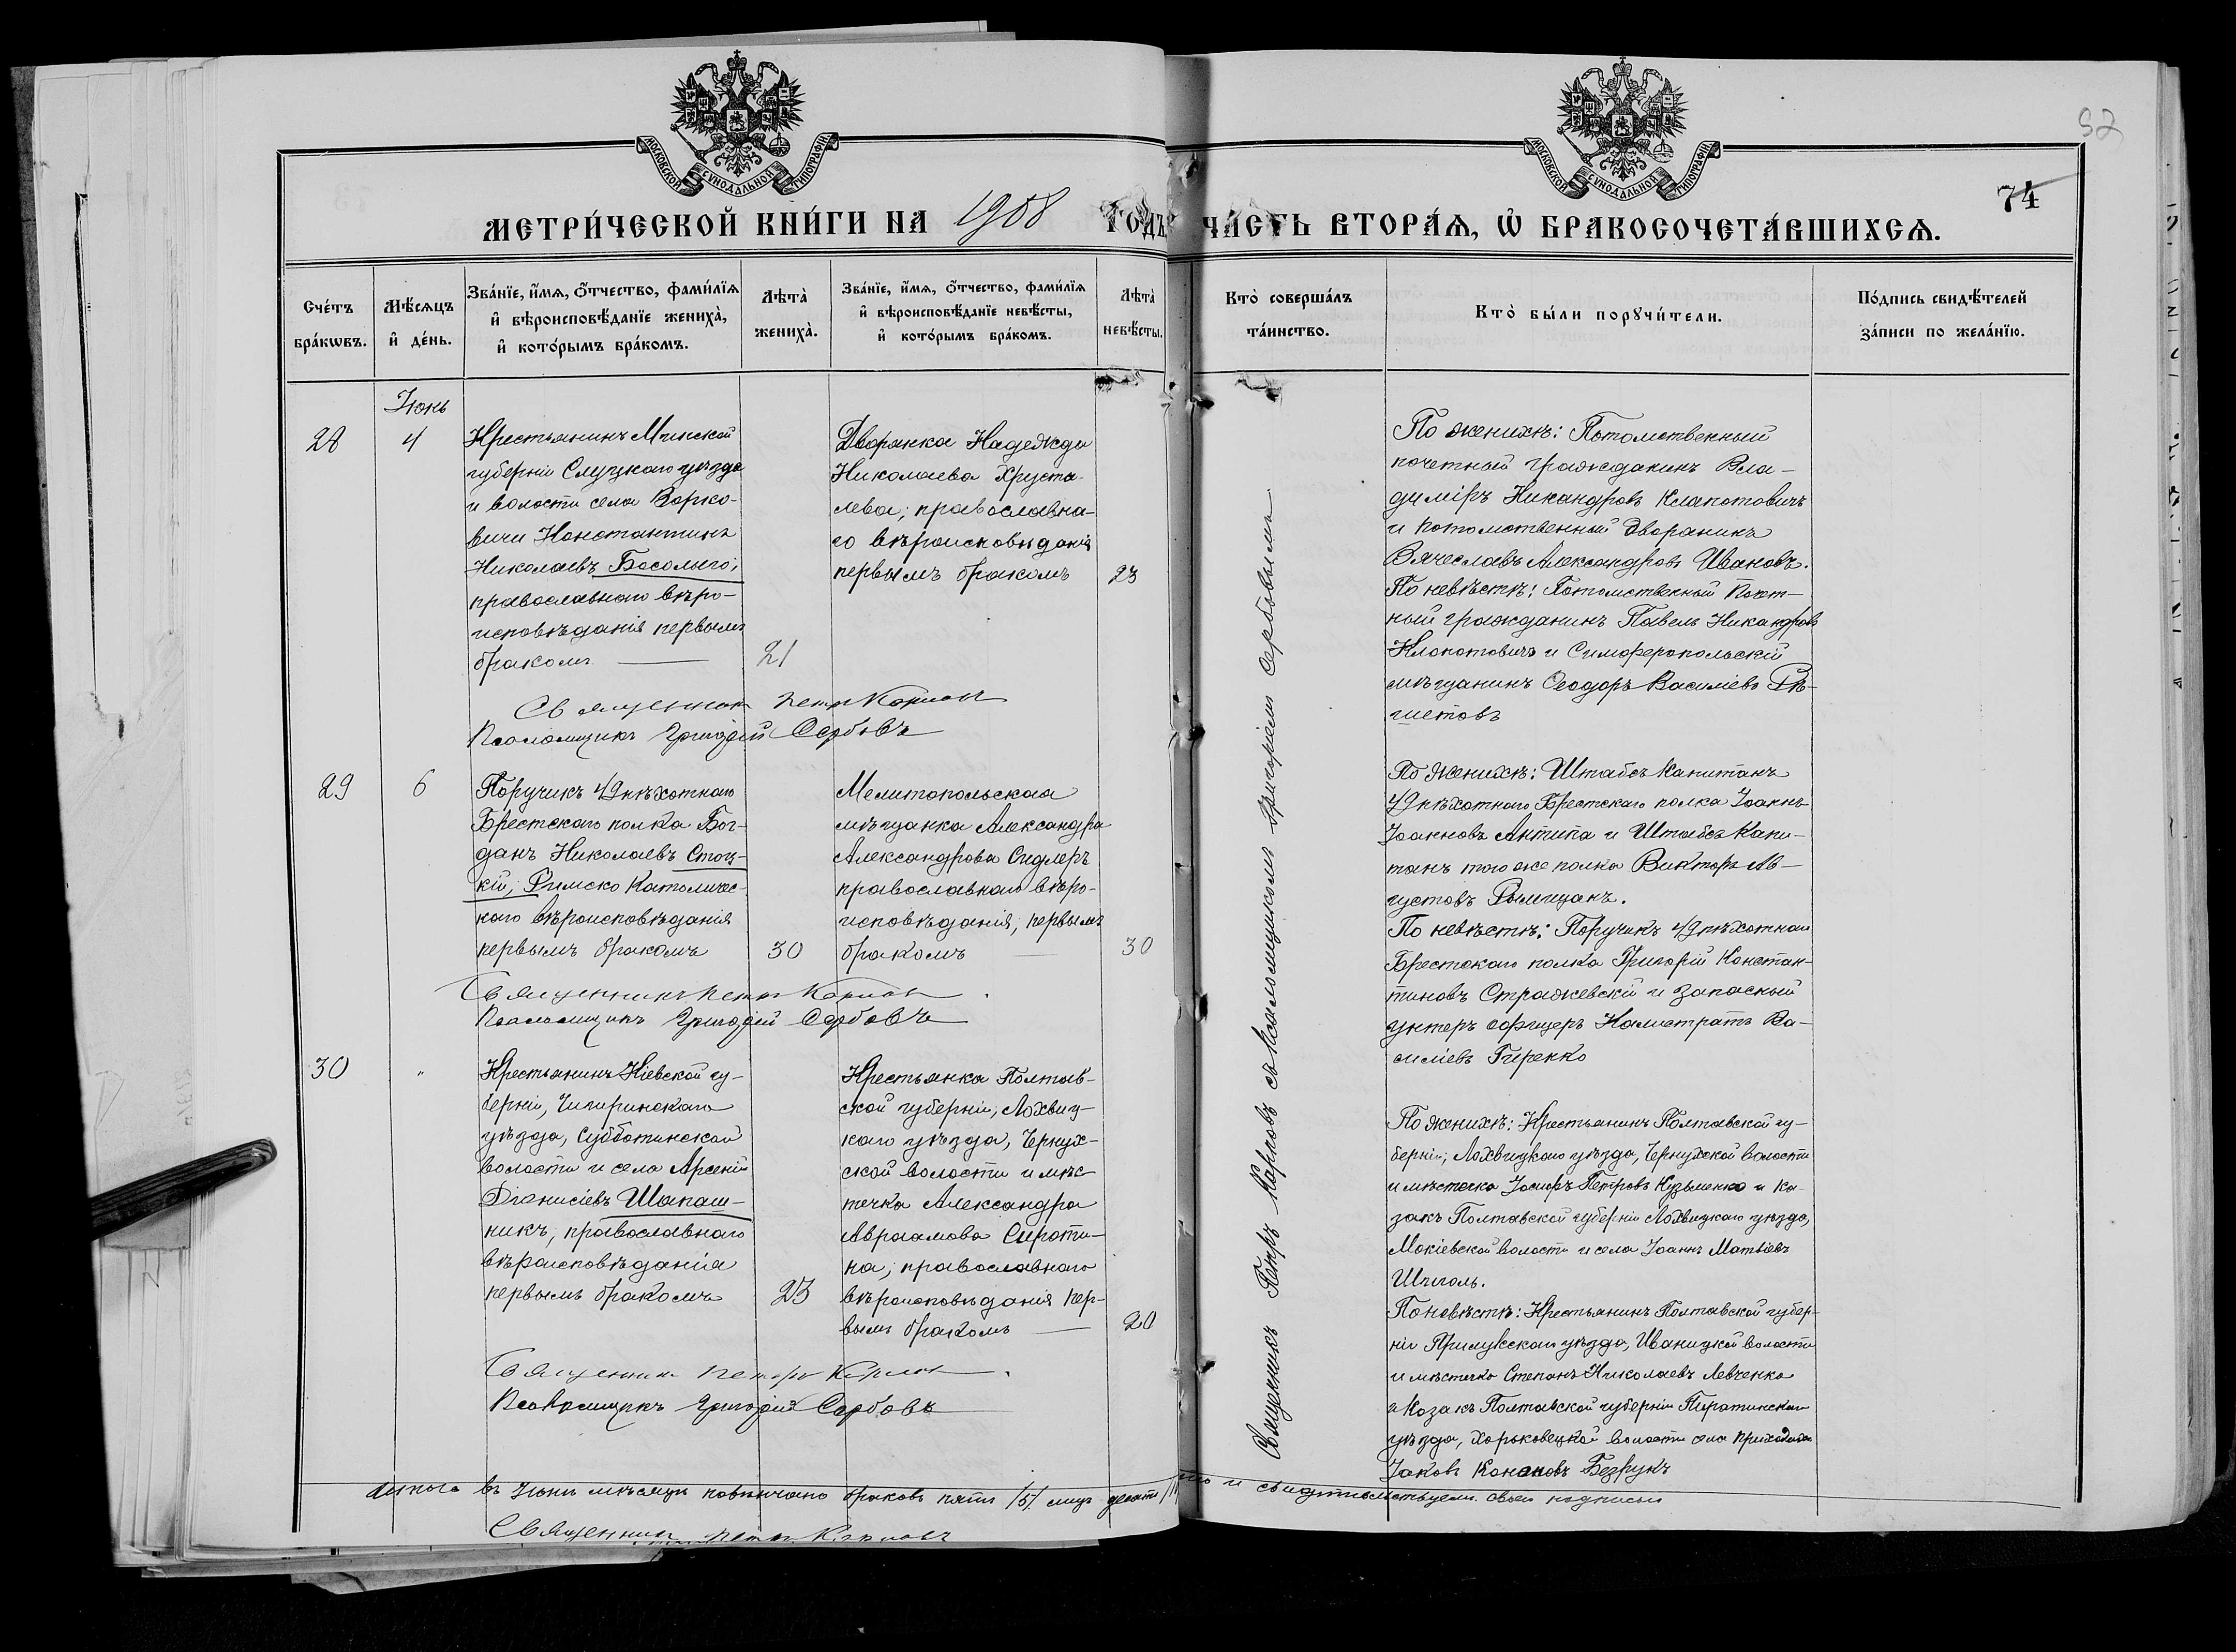 92
74
МОСКОВСКОЙ СѴНОДАЛЬНОЙ ТИПОГРАФІИ
МОСКОВСКОЙ СѴНОДАЛЬНОЙ ТИПОГРАФІИ
МЕТРИ́ЧЕСКОЙ КНИ́ГИ НА 1908 ГОДЪ ЧА́СТЬ ВТОРА́Ѧ, Ѡ҆ БРАКОСОЧЕТА́ВШИХСѦ.
Сче́тъ бра́кѡвъ.
Мѣ́сяцъ и҆ де́нь.
Зва́нїе, и҆́мѧ, ѻ҆́тчество, фами́лїѧ и҆ вѣроисповѣ́данїе жениха̀, и҆ кото́рымъ бра́комъ.
Лѣта̀ жениха̀.
Зва́нїе, и҆́мѧ, ѻ҆́тчество, фами́лїѧ и҆ вѣроисповѣ́данїе невѣ́сты, и҆ кото́рымъ бра́комъ.
Лѣта̀ невѣ́сты.
Кто̀ соверша́лъ та́инство.
Кто̀ бы́ли порꙋчи́тели.
По́дпись свидѣ́телей за́писи по жела́нїю.
Іюнь
28
4
Крестьянинъ Минской
губерніи Слуцкаго уѣзда
и волости села Варко-
вичи Константинъ
Николаевъ Босолыго;
православнаго вѣро-
исповѣданія первымъ
бракомъ
21
Дворянка Надежда
Николаева Хруста-
лева; православна-
го вѣроисповѣданія
первымъ бракомъ
23
Священникъ Петръ Карповъ
Псаломщикъ Григорій Сербовъ
По женихѣ: Потомственный
почетный гражданинъ Вла-
диміръ Никандровъ Клопотовичъ
и потомственный дворянинъ
Вячеславъ Александровъ Ивановъ.
По невѣстѣ: Потомственный почет-
ный гражданинъ Павелъ Никандровъ
Клопотовичъ и Симферопольскій
мѣщанинъ Ѳеодоръ Василіевъ
29
6
Поручикъ 49 пѣхотнаго
Брестскаго полка Бог-
данъ Николаевъ Стоц-
кій; Римско Католичес-
каго вѣроисповѣданія
первымъ бракомъ
30
Мелитопольская
мѣщанка Александра
Александрова Сидлеръ
православнаго вѣро-
исповѣданія; первымъ
бракомъ
30
Священникъ Петръ Карповъ
Псаломщикъ Григорій Сербовъ
По женихѣ: Штабсъ Капитанъ
49 пѣхотнаго Брестскаго полка Іоаннъ
Іоанновъ Антипа и Штабсъ Капи-
танъ того же полка Викторъ Ав-
густовъ Рымщанъ.
По невѣстѣ: Поручикъ 49 пѣхотнаго
Брестскаго полка Григорій Констан-
тиновъ Стражевскій и запасный
унтеръ офицеръ Калистратъ Ва-
силіевъ Гиренко
30
"
Крестьянинъ Кіевской гу-
берніи, Чигиринскаго
уѣзда, Субботинской
волости и села Арсеній
Діонисіевъ Шапаш-
никъ, православнаго
вѣроисповѣданія
первымъ бракомъ
23
Крестьянка Полтав-
ской губерніи, Лохвиц-
каго уѣзда, Чернух-
ской волости и мѣс-
течка Александра
Авраамова Сироти-
на; православнаго
вѣроисповѣданія пер-
вымъ бракомъ
20
Священникъ Петръ Карповъ
Псаломщикъ Григорій Сербовъ
По женихѣ: Крестьянинъ Полтавской гу-
берніи, Лохвицкаго уѣзда, Чернухской волости
и мѣстечка Іосифъ Петровъ Кузьменко и ка-
закъ Полтавской губерніи Лохвицкаго уѣзда,
Мокіевской волости и села Іоаннъ Матвіевъ
Шпиголь.
По невѣстѣ: Крестьянинъ Полтавской губер-
ніи Прилукскаго уѣзда, Иваницкой волости
и мѣстечка Степанъ Николаевъ Левченко
и козакъ Полтавской губерніи Пирятинскаго
уѣзда, Харьковецкой волости села Приходьки
Іаковъ Кононовъ Безрукъ
Священникъ Петръ Карповъ съ псаломщикомъ Григоріемъ Сербовымъ
Итого въ Іюнѣ мѣсяцѣ повѣнчано браковъ пять /5/ лицъ десять что и свидѣтельствуемъ своей подписью
Священникъ Петръ Карповъ